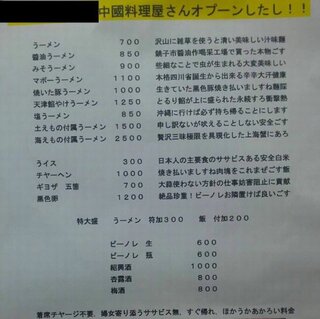 中國料理屋さんオプーンしたし！！
らーメン 700 沢山に雑草を使うと清い美味しい汁味麵
醤油うーメン 850 銚子市醤油作喝采工場で買った本物ごす
みそうーメン 900 些細なことで虫が生まれる大変美味しい
マポーうーメン 1000 本格四川省誕生から出来る辛辛大汗健康
焼いた豚うーメン 1000 生きていた黒色豚焼き払いましすね豚探
天津館やけうーメン 1250 とろり餡が上に盛られた永続すろ衝撃熱
塩うーメン 850 沖縄に行けば必ず持ち帰ることにします
土えもの付属うーメン 1500 申し訳ないが吠えることしない安全ごす
海えもの付属うーメン 2500 贅沢三昧極限を具現した上海蟹にあろ
ライス 300 日本人の主要食のササピスある安全白米
チヤーヘン 1000 焼き払いましすね肉塊をこれまぜごす飯
ギヨザ 五箇 700 大蒜使わない方針の仕事妨害阻止に貢献
黒色卵 1200 絶品珍重！ピーノレお隣置けば良いごす
特大盛 うーメン 符加300 飯 付加200
ピーノレ 生 600
ピーノレ 瓶 600
紹興酒 1000
杏露酒 800
梅酒 800
着席チヤージ不要、婦女寄り添うササピス無、すぐ帰れ、ほかうかあかろい料金